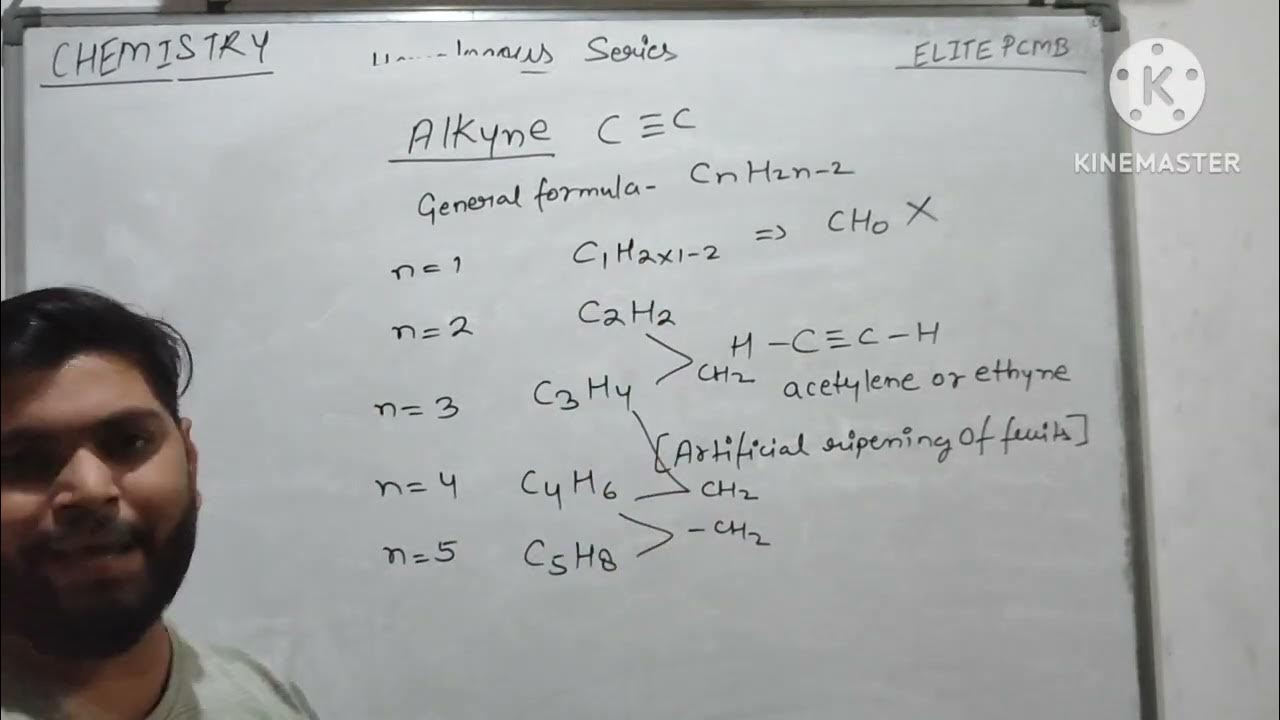 CHEMISTRY
Series
ELITE PCMB
K
KINEMASTER
Alkyne C≡C
General formula- CnH2n-2
n=1 C1H2x1-2 => CH0 X
n=2 C2H2
H-C≡C-H
CH2 acetylene or ethyne
n=3 C3H4
[Artificial ripening Of fruits]
n=4 C4H6 CH2
-CH2
n=5 C5H8